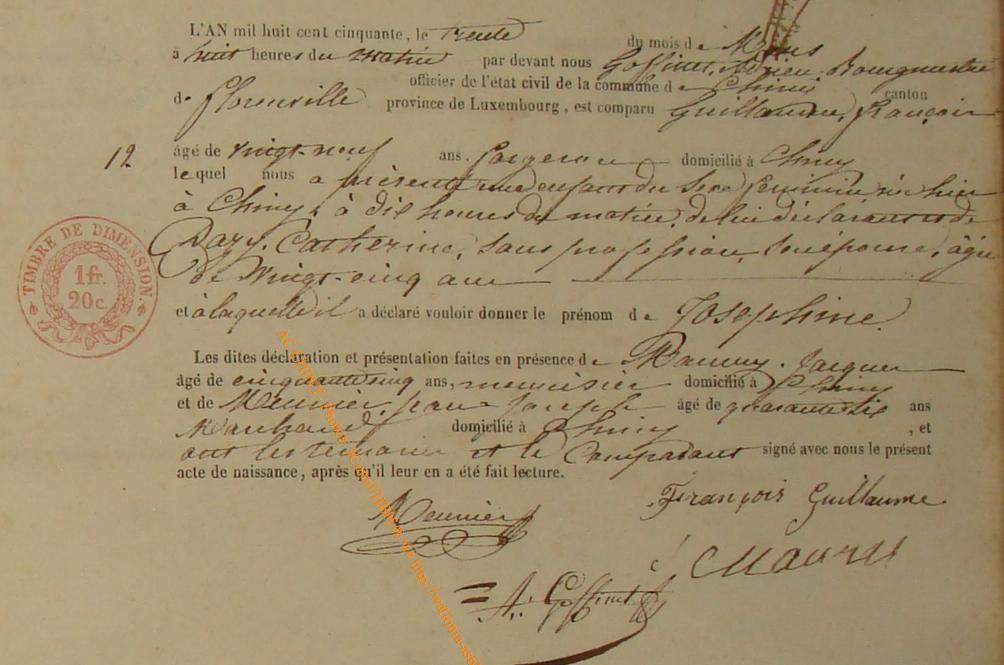 L'AN mil huit cent cinquante, le trente du mois de Mars
à huit heures du matin par devant nous Goffinet, Adrien, Bourgmestre
officier de l'état civil de la commune de Chiny canton
de Florenville province de Luxembourg, est comparu Guillaume, François
12 âgé de vingt-neuf ans. domicilié à Chiny
lequel nous a présenté une enfant du Sexe féminin, née hier
à Chiny, à dix heures du matin, de lui déclarant et de
Catherine, Sans profession, Son épouse, âgée
de Vingt-cinq ans
et à laquelle il a déclaré vouloir donner le prénom de Josephine.
Les dites déclaration et présentation faites en présence de Jacques
âgé de cinquante cinq ans, menuisier domicilié à Chiny
et de Meunier, jean-Joseph âgé de quarante six ans
Marchand domicilié à Chiny, et
ont les temoins et le Comparant signé avec nous le présent
acte de naissance, après qu'il leur en a été fait lecture.
TIMBRE DE DIMENSION.
1 fr.
20 c.
François Guillaume
Meunier
A. Goffinet